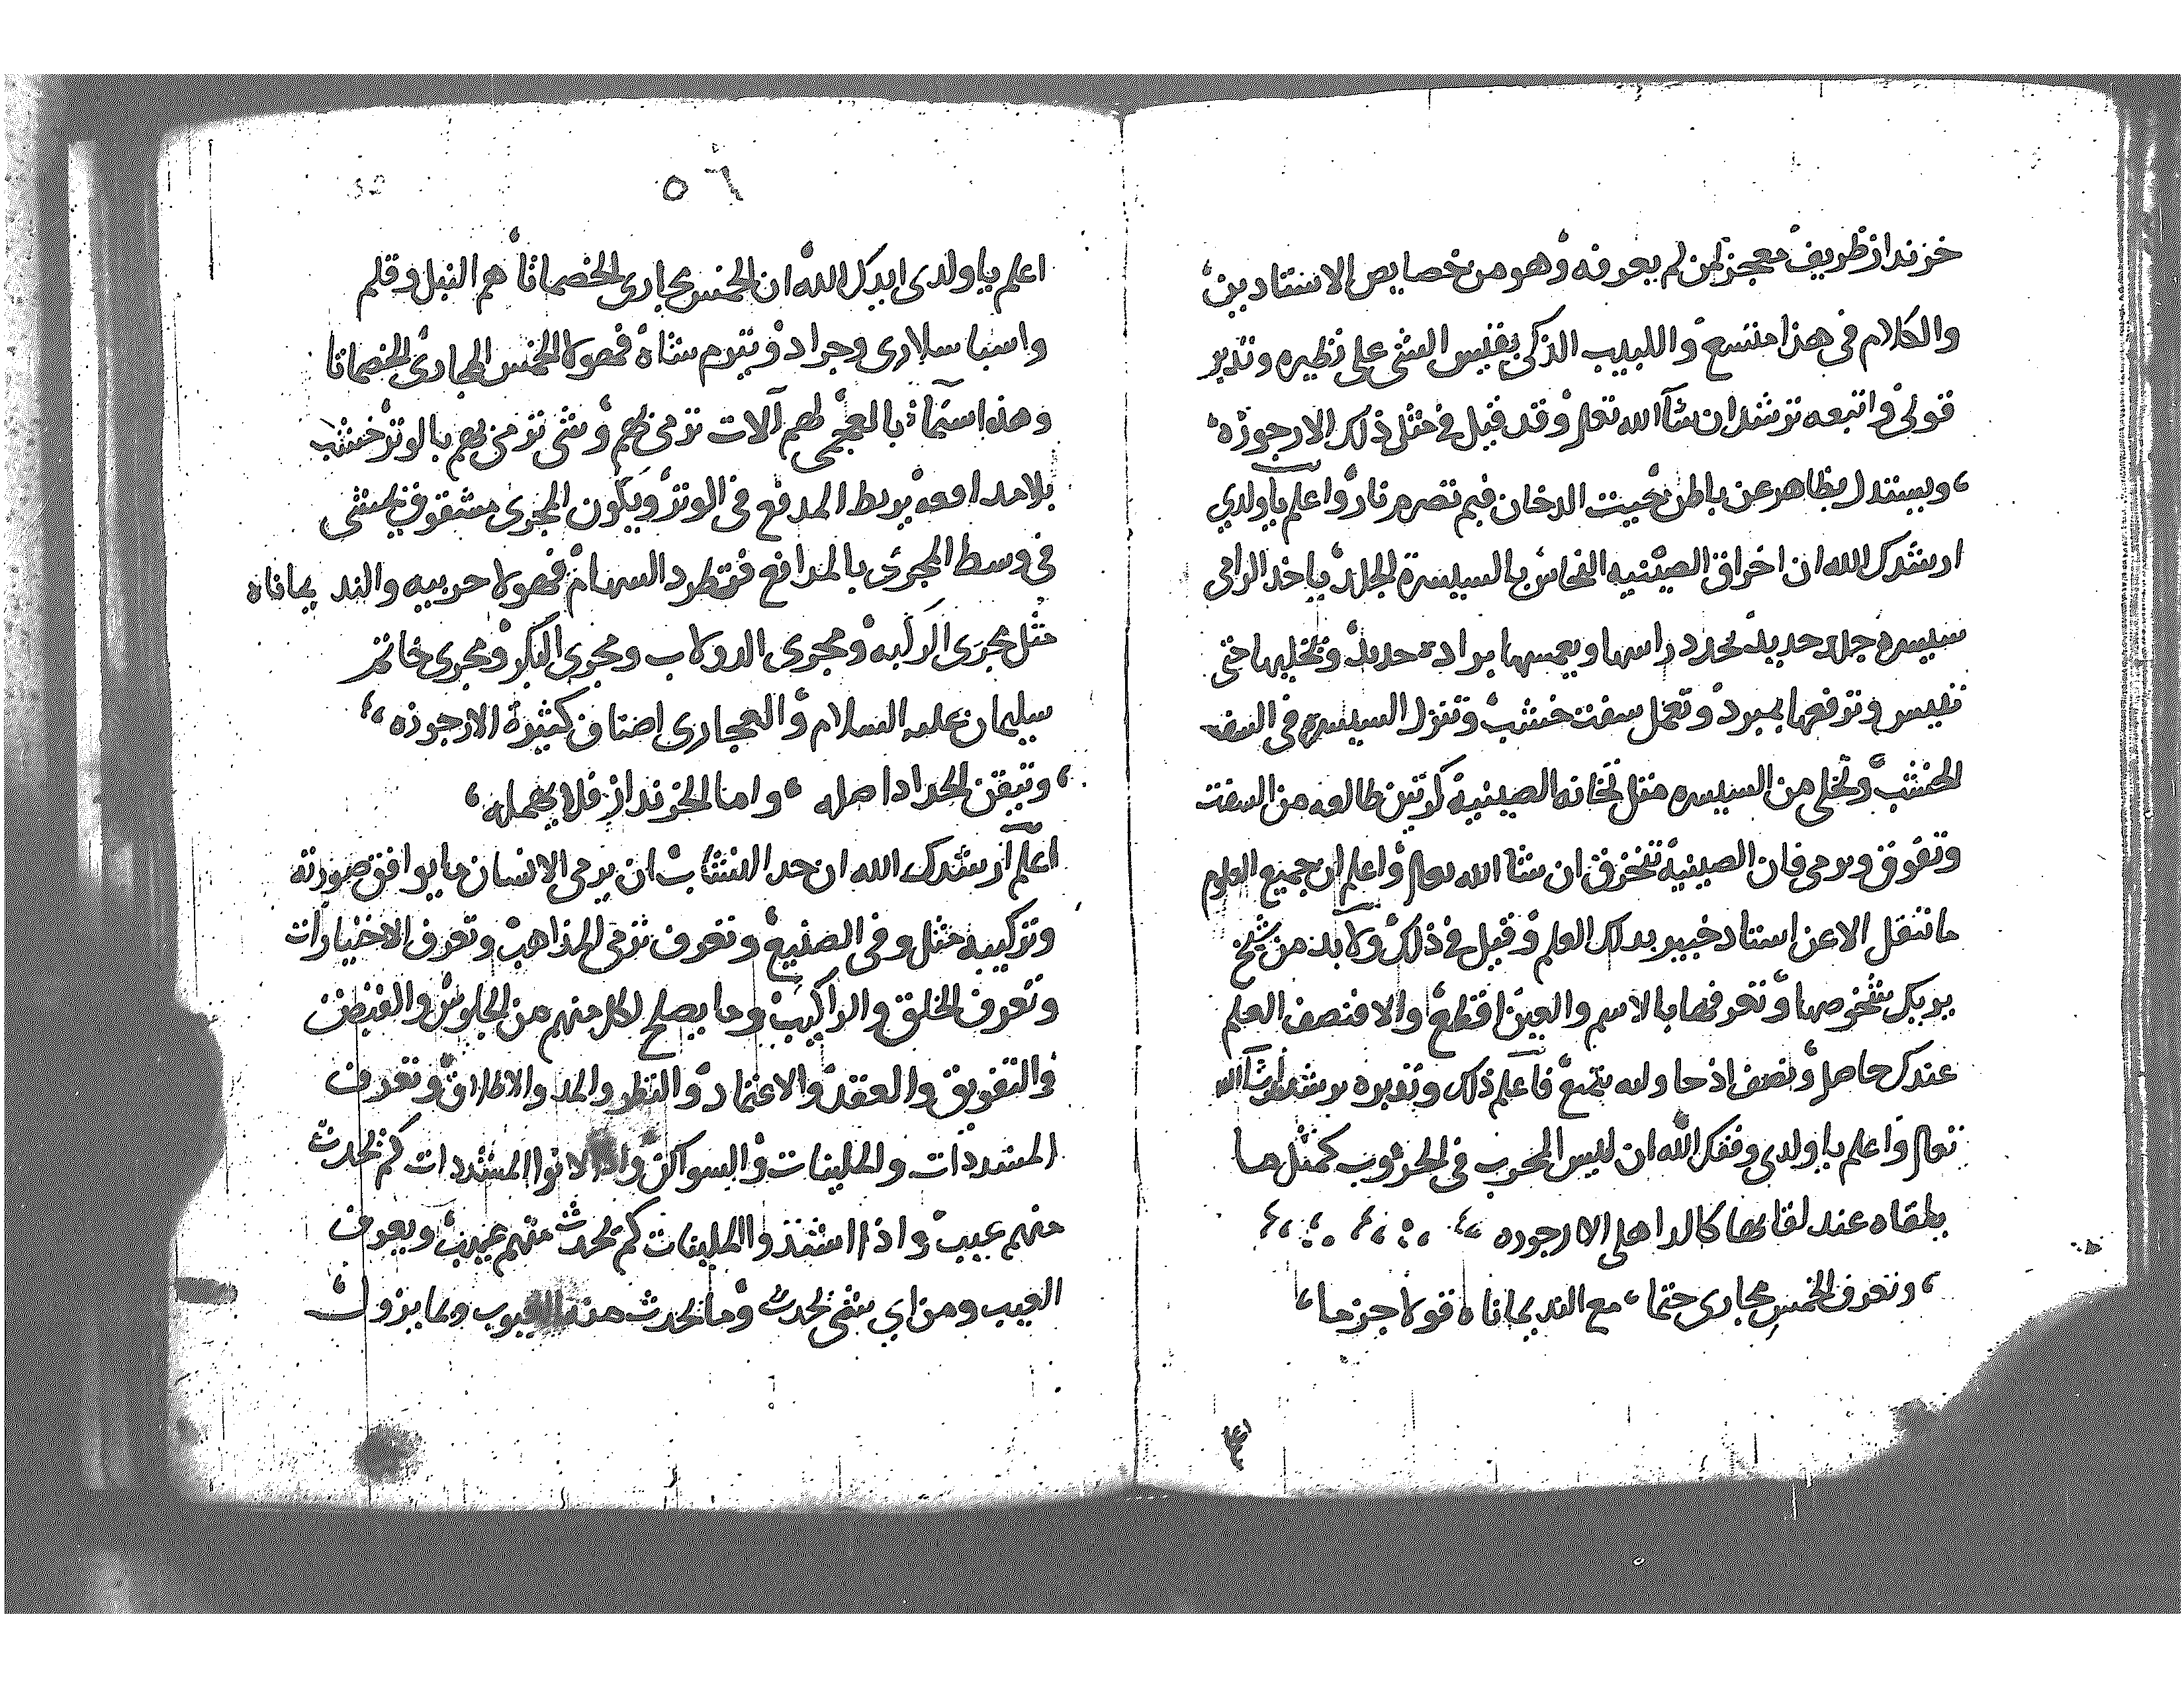 خزنداز ظريف معجز لمن لم يعرفه وهو من خصايص الاستادين
والكلام في هذا متسع واللبيب الذكي يقيس الشي على نظيره وتدبر
قولي واتبعه ترشد ان شآ الله تعلى وقد قيل في مثل ذلك الارجوزه
ويستدل بظاهر عن باطن بحيت الدخان فيم تضرم نار واعلم ياولدي
ارشدك الله ان اخراق الصينيه النحاس بالسيسرة الجلد ياخد الرامي
سيسره جلد حديد تحدد راسها ويعمسها برادة حديد وتخليها حتى
تيبس وترفعها بمبرد وتعمل سفت خشب وتنزل السيسره في السفت
الخشب وتخلي من السيسره متل تخانه الصينيه كرتين طالعه من السفت
وتفوق وترمي فان الصينية تنخرق ان شا الله تعلى واعلم ان جميع العلوم
ماتنقل الا عن استاد خبير بدلك العلم وقيل في ذلك ولابد من شيخ
يريك شخوصها وتعرفها بالاسم والعين اقطع والا فنصف العلم
عندك حاصل ونصف اذا حاولته يتمنع فاعلم ذلك وتدبره ترشد ان شآ الله
تعلى واعلم ياولدي وفقك الله ان ليس المجرب في الحروب كمثل ما
يلقاه عند لقائها كالداهلي الارجوزه
وتعرف الخمس مجاري حتما مع الند يماناه قولا جزما
اعلم
٥٦
اعلم ياولدى ايدك الله ان الخمس مجارى الخصمانا هم النبل وقلم
واسبا سلارى وجراد وتيرم شاه فهولا الخمس المجارى الخصمانا
وهذه اسمآة بالعجمى لهم آلات ترمى بهم وشى ترمى بهم بالوتر خشب
بلا مدافعه يربط المدفع فى الوتر ويكون المجرى مشقوق يمشى
فى وسط المجرى بالمدافع فتطرد السهام فهولا حربيه والند يماناه
مثل مجرى الركبه ومجرى الدولاب ومجرى البكر ومجرى خاتم
سليمان عليه السلام والمجارى اصناف كثيرة الارجوزه
وتيقن الحد ادا صله واما الخزنداز فلا يهمله
اعلم ارشدك الله ان حد النشاب ان يرمى الانسان مايوافق صورته
وتركيبه مثل وفى الصنيع وتعرف ترمى المذاهب وتعرف الاختيارات
وتعرف الخلق والتراكيب وما يصلح لكل منهم من الجلوس والقبض
والتفويق والعقد والاعتماد والنظر والمد والاطلاق وتعرف
المشددات والملينات والسواكن واذا لانوا المشددات كم يحدث
منهم عيب واذا اشتدوا الملينات كم يحدث منهم عيب ويعرف
العيب ومن اي شى يحدث وما يحدث منه العيوب وبما يزول